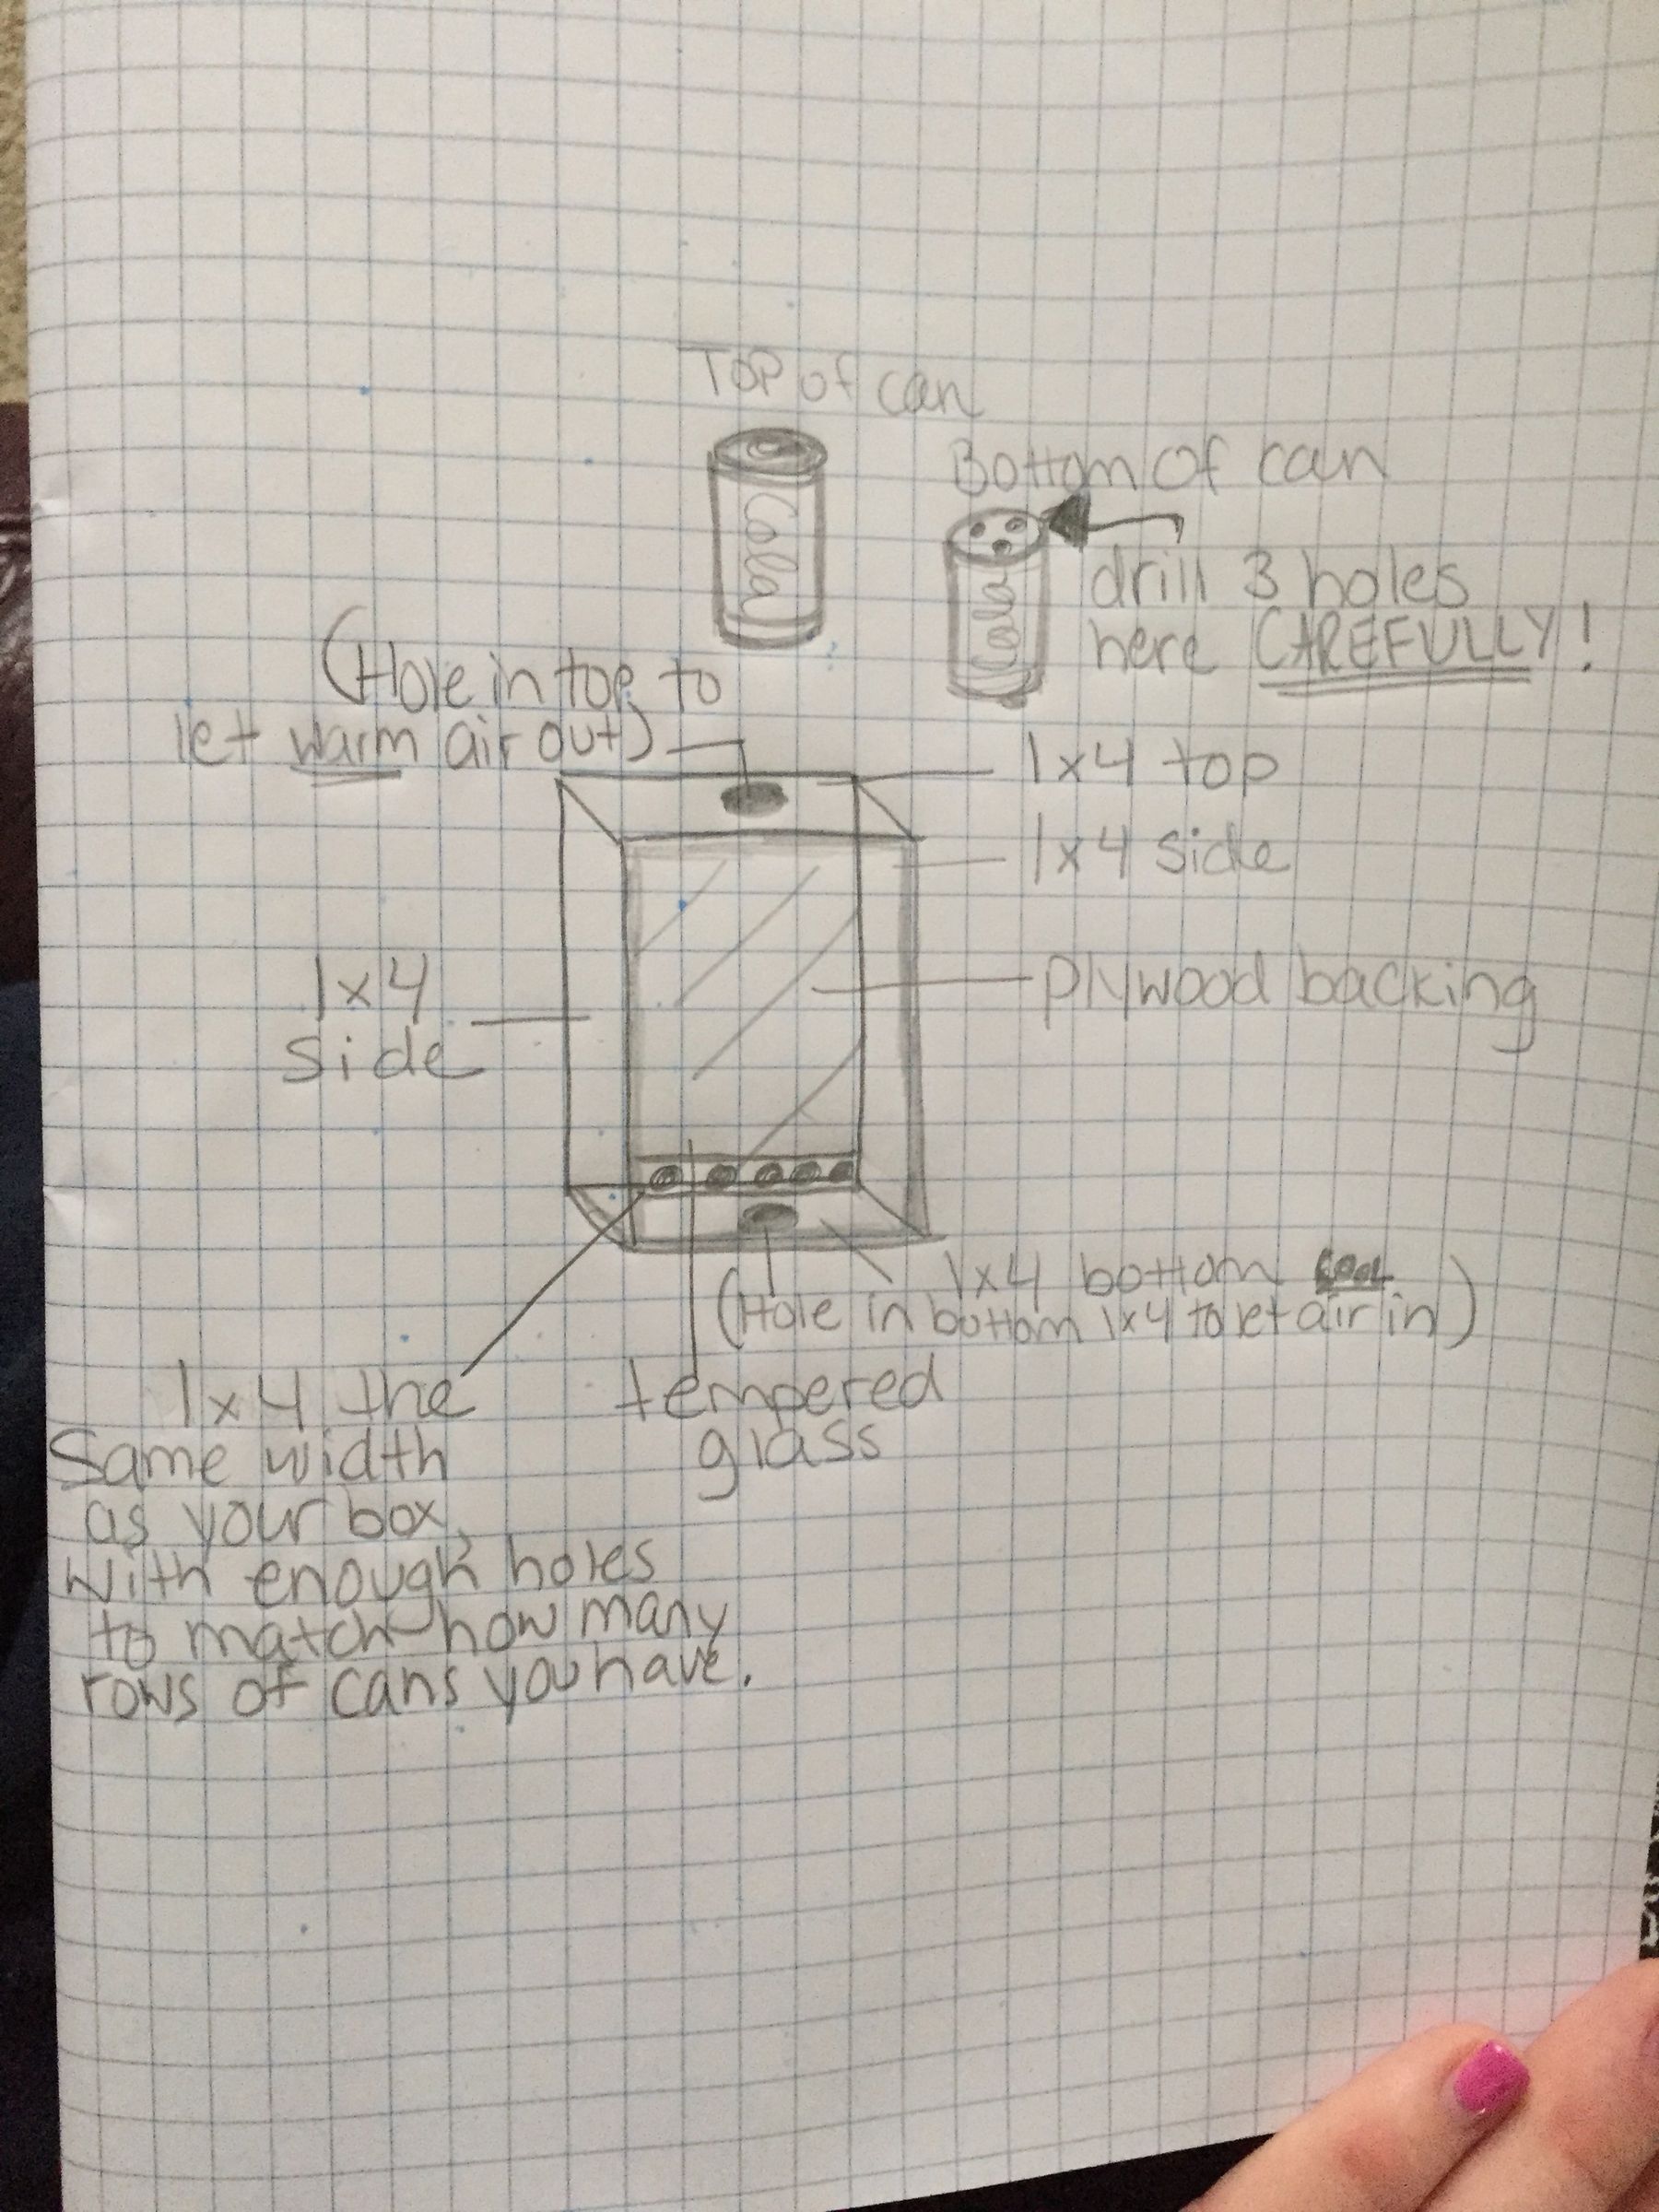 Top of can
Cola
Bottom of can
Cola
drill 3 holes
here CAREFULLY!
(Hole in top to
let warm air out)
1x4 top
1x4 side
1x4
side
plywood backing
1x4 bottom
(Hole in bottom 1x4 to let air in)
tempered
glass
1x4 the
same width
as your box,
with enough holes
to match how many
rows of cans you have.